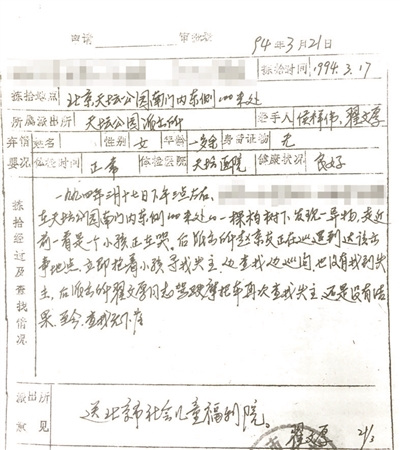 申请 审批表
94年3月21日
拣拾时间 1994.3.17
拣拾地点 北京天坛公园南门内东侧100米处
所属派出所 天坛公园派出所 经手人 翟文厚
弃婴 姓名 性别 女 年龄 一岁余 身份证物 无
婴况 体检时间 正常 体检医院 天坛医院 健康状况 良好
拣拾经过及查找情况
一九九四年三月十七日下午三点左右
在天坛公园南门内东侧100米处的一棵柏树下,发现一异物,走近
前一看是个小孩正在哭,后派出所赵京友正在巡逻到达该出
事地点,立即抱着小孩寻找失主,边查找边巡问,也没有找到失
主,后派出所翟文厚同志骑摩托车再次查找失主,还是没有结
果,至今查找无下落
派出所意见
送北京市社会儿童福利院。
翟文厚 21/3